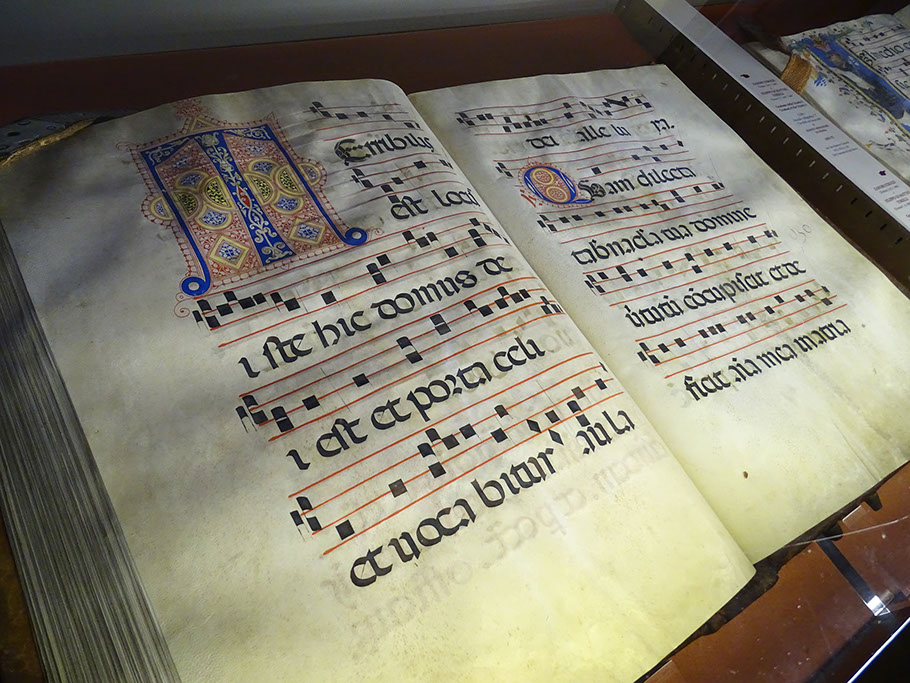 Terribilis
est locus
iste hic domus de
i est et porta celi
et vocabitur aula
dei alle lu
Quam dilecta
tabnacla tua domine
cōcupiscit et de
ficit aīa mea in atria